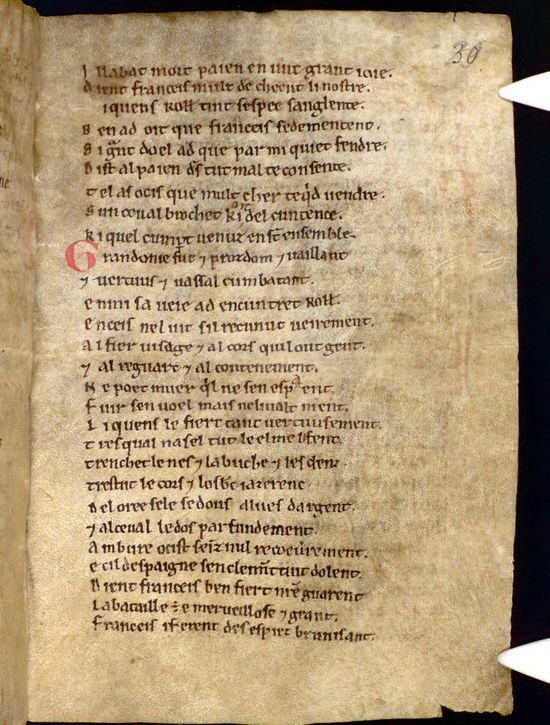 30
Il labat mort paien en unt grant ioie.
Dient franceis mult decheent li nostre.
li quens Roll tint sespee sanglente.
Ben ad oit que franceis se dementent.
Si gñt doel ad que par mi quiet fendre.
Dist al paien ds tut mal te consente.
tel as ocis que mult cher te qid vendre.
Sun ceval brochet ki del cuntence.
Ki quel cumpt venuz en st ensemble.
Grandonie fut ⁊ prozdom ⁊ vaillant
⁊ vertuus ⁊ vassal cumbatant.
enmi sa veie ad encuntret Roll.
enceis nel vit sil recunut veirement.
Al fier visage ⁊ al cors quil out gent.
⁊ al reguart ⁊ al contenement.
Ne poet muer ql ne sen espoent.
Fuir sen voel mais ne li valt nient.
Li quens le fiert tant vertuusement.
tresqual nasel tut le elme li fent.
trenchet le nes ⁊ la buche ⁊ les denz
trestut le cors ⁊ losbc iazerenc
Del oree sele se dous alves dargent.
⁊ al ceval le dos parfundement.
Ambure ocist seinz nul recoevrement.
e cil despaigne sen cleiment tuit dolent.
Dient franceis ben fiert nre guarent
La bataille e merveillose ⁊ grant.
Franceis i ferent des espiez brunisant.